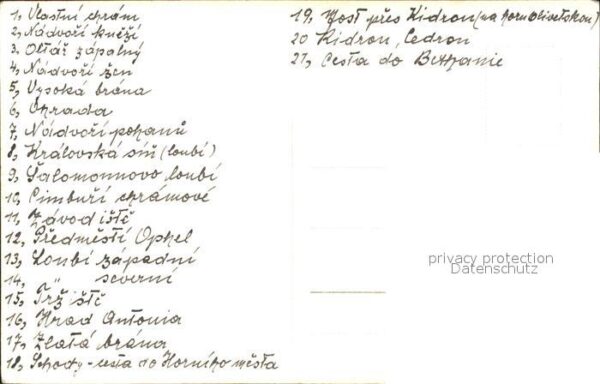 1, Vlastní chrám
2, Nádvoří kněží
3, Oltář zápalný
4, Nádvoří žen
5, Vysoká brána
6, Ohrada
7, Nádvoří pohanů
8, Královská síň (loubí)
9, Šalomounovo loubí
10, Cimbuří chrámové
11, Závodiště
12, Předměstí Ophel
13, Loubí západní
14, " severní
15, Tržiště
16, Hrad Antonia
17, Zlatá brána
18, Schody - cesta do Horního města
19, Most přes Kidron (na horu olivetskou)
20 Kidron, Cedron
21, Cesta do Bethanie
privacy protection
Datenschutz